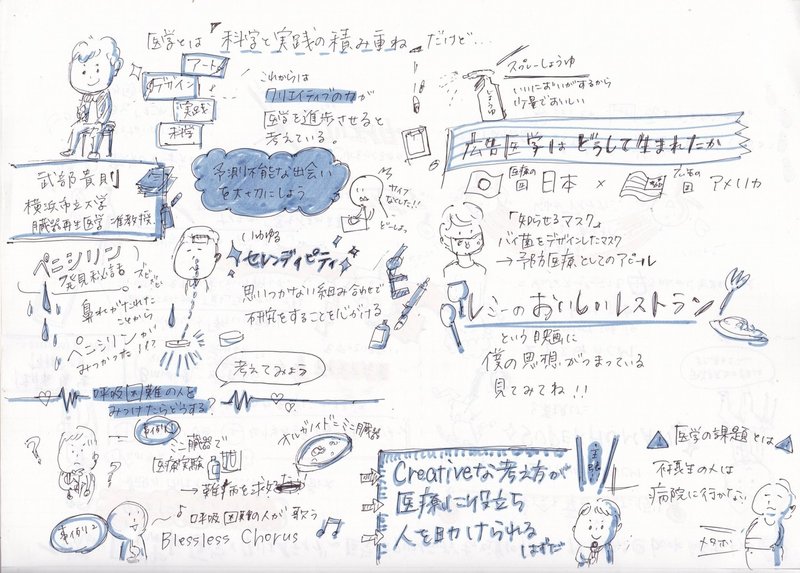 医学とは「科学と実践の積み重ね」だけど…
アート
デザイン
実践
科学
これからは
クリエイティブの力が
医学を進歩させると
考えている。
武部貴則
横浜市立大学
臓器再生医学 准教授
予測不能な出会い
を大切にしよう
サイフ
なくした!!
どーしよ
ペニシリン
発見秘話
ズビッ
鼻水がたれた
ことから
ペニシリンが
みつかった!?
いわゆる
セレンディピティ
思いつかない組み合わせで
研究をすることを心がける
考えてみよう
呼吸困難の人を
みつけたらどうする?
事例1
ミニ臓器で
医療実験
オルガノイド=ミニ臓器
→難病を救える!
事例2
♪呼吸困難の人が歌う
Blessless Chorus
スプレーしょうゆ
いいにおいがするから
少量でおいしい
しょうゆ
広告医学はどうして生まれたか
医療の国
日本 × アメリカ
「知らせるマスク」
バイ菌をデザインしたマスク
→予防医療としてのアピール
レミーのおいしいレストラン
という映画に
僕の思想がつまっている
見てみてね!!
Creativeな考え方が
医療に役立ち
人を助けられる
はずだ
医学の課題とは
不養生の人は
病院に行かない
メタボ